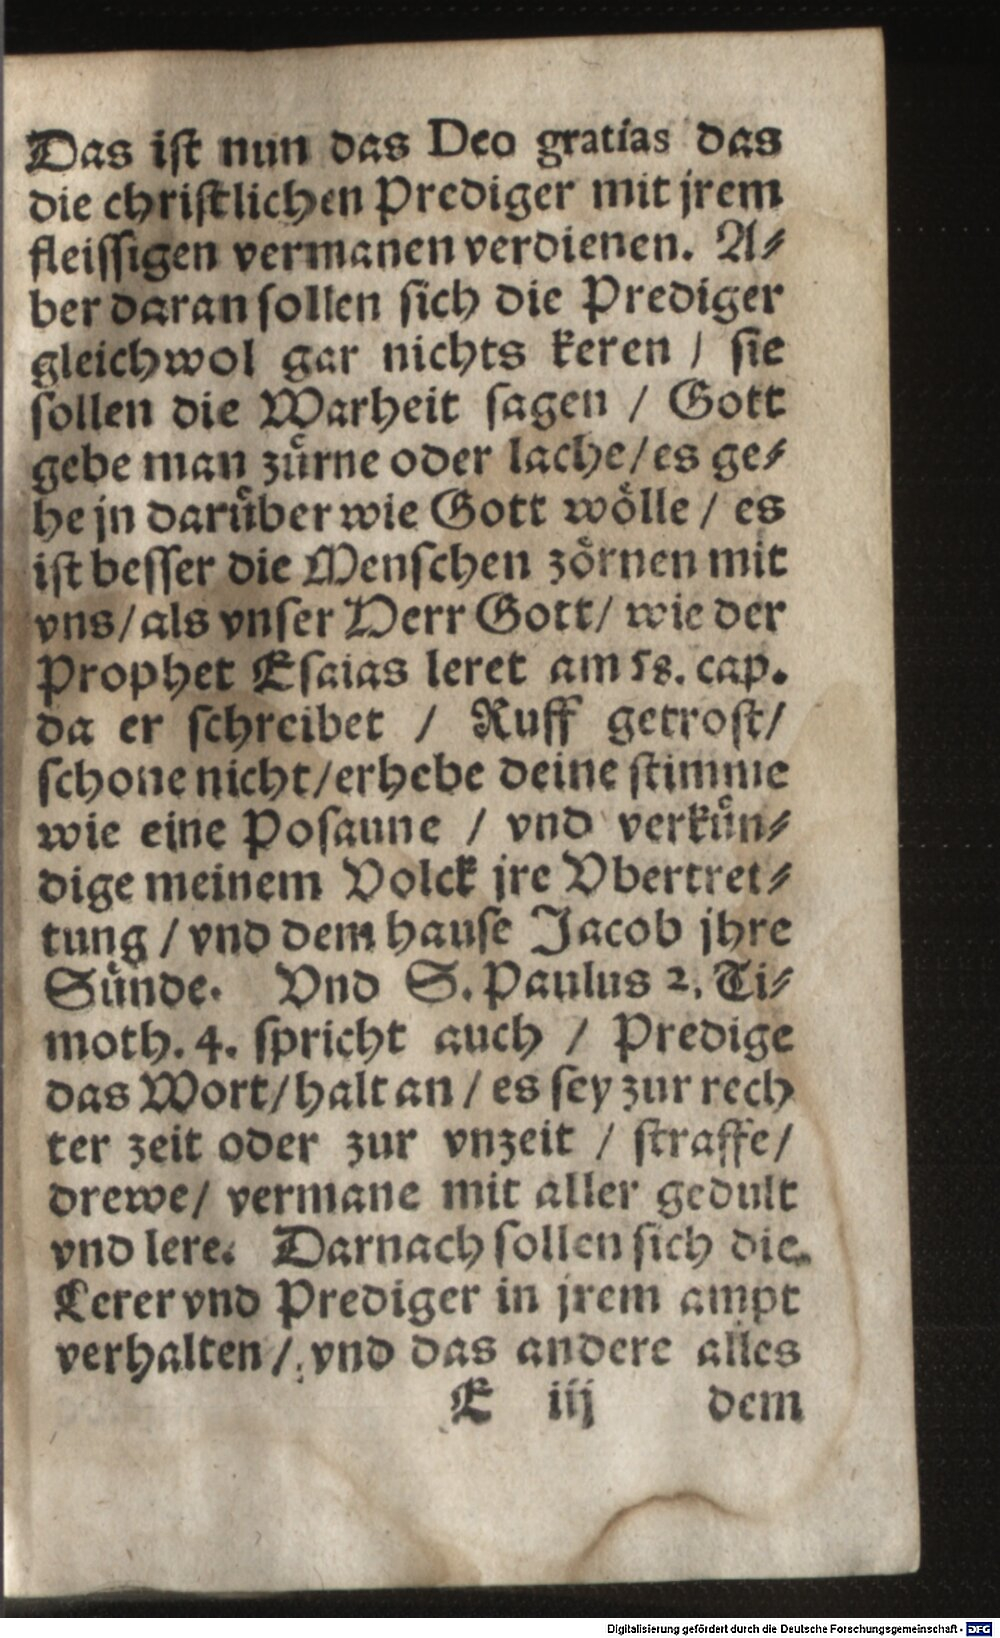 Das ist nun das Deo gratias das
die christlichen Prediger mit jrem
fleissigen vermanen verdienen. A⸗
ber daran sollen sich die Prediger
gleichwol gar nichts keren / sie
sollen die Warheit sagen / Gott
gebe man zuͤrne oder lache / es ge⸗
he jn daruͤber wie Gott woͤlle / es
ist besser die Menschen zoͤrnen mit
vns / als vnser Herr Gott / wie der
Prophet Esaias leret am 58. cap.
da er schreibet / Ruff getrost /
schone nicht / erhebe deine stimme
wie eine Posaune / vnd verkuͤn⸗
dige meinem Volck jre Vbertret⸗
tung / vnd dem hause Jacob jhre
Suͤnde. Vnd S. Paulus 2. Ti⸗
moth. 4. spricht auch / Predige
das Wort / halt an / es sey zur rech
ter zeit oder zur vnzeit / straffe /
drewe / vermane mit aller gedult
vnd lere. Darnach sollen sich die
Lerer vnd Prediger in jrem ampt
verhalten / vnd das andere alles
E iij dem
Digitalisierung gefördert durch die Deutsche Forschungsgemeinschaft - DFG